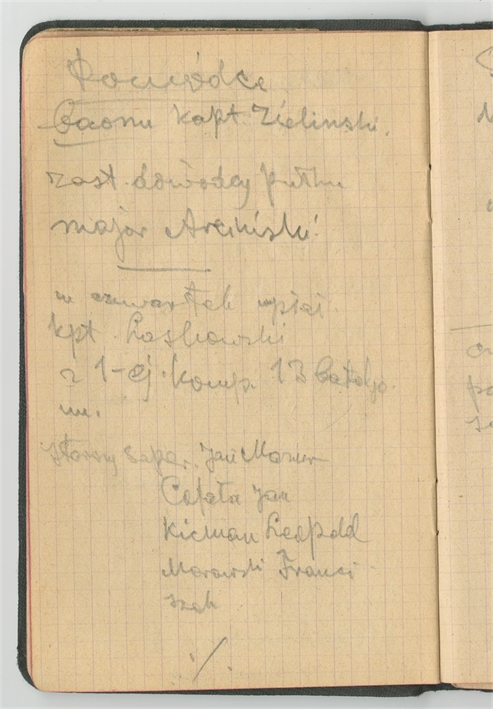 Dowódca
baonu kapt. Zieliński.
zast. dowódcy pułku
major Arciński!
w czwartek wpisi.
kpt. Laskowski
z 1-ej komp. 13 bataljo.
nu.
starszy saper. Jan Mazur
Capała Jan
Kicman Leopold
Morawski Franci
szek
./.